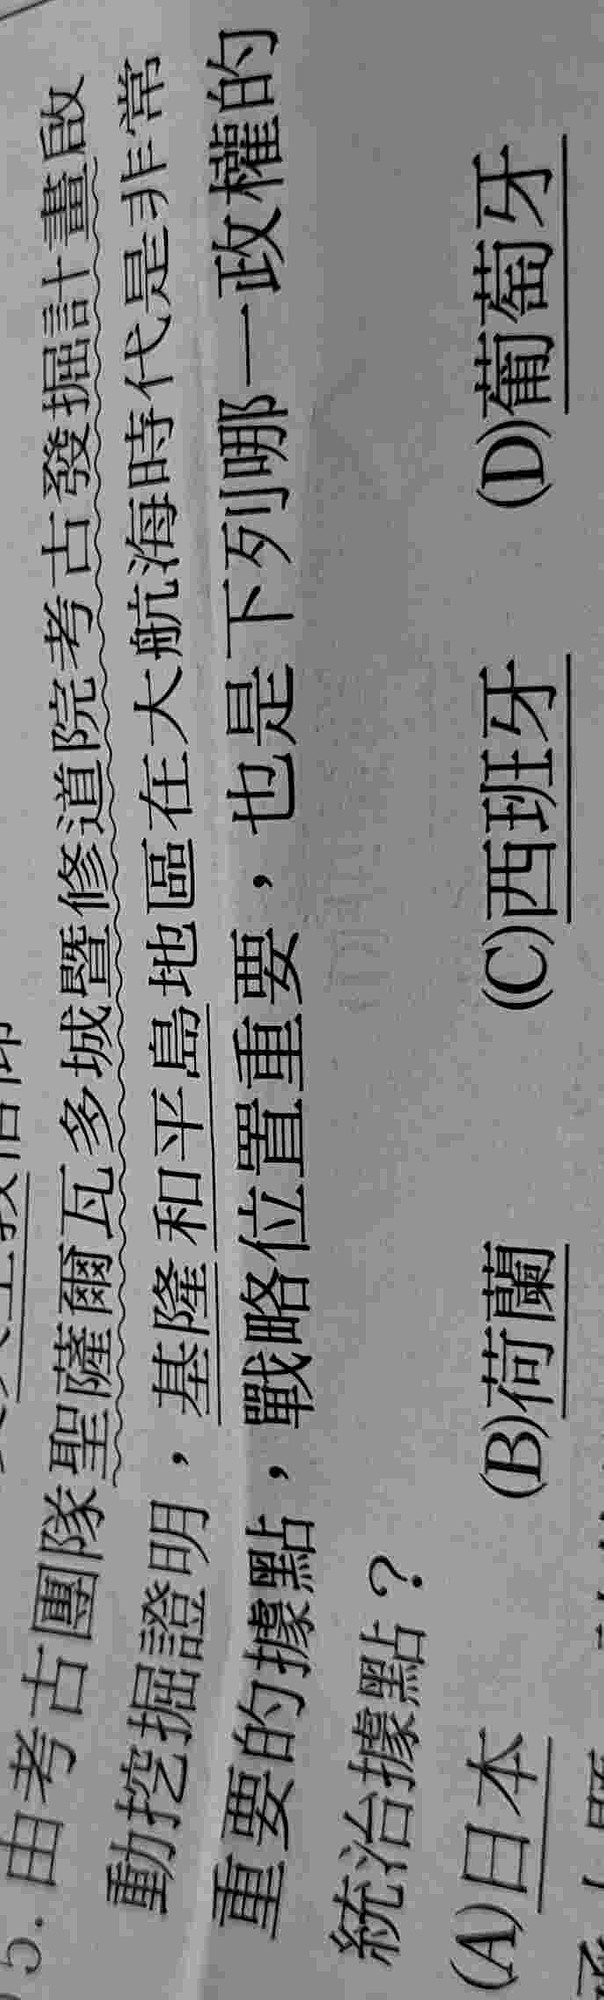 5. 由考古團隊聖薩爾瓦多城暨修道院考古發掘計畫啟
動挖掘證明，基隆和平島地區在大航海時代是非常
重要的據點，戰略位置重要，也是下列哪一政權的
統治據點？
(A)日本 (B)荷蘭 (C)西班牙 (D)葡萄牙